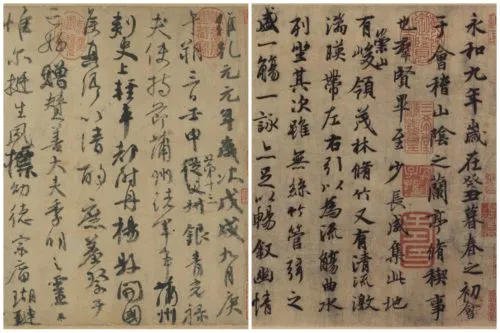 永和九年歲在癸丑暮春之初會
于會稽山陰之蘭亭脩稧事
也羣賢畢至少長咸集此地
有崇山峻領茂林脩竹又有清流激
湍暎帶左右引以為流觴曲水
列坐其次雖無絲竹管弦之
盛一觴一詠亦足以暢敘幽情
維乾元元年歲次戊戌九月庚
午朔三日壬申第十三叔銀青光祿
夫使持節蒲州諸軍事蒲州
刺史上輕車都尉丹楊縣開國
侯真卿以清酌庶羞祭于
亡姪贈贊善大夫季明之靈
惟爾挺生夙標幼德宗廟瑚璉